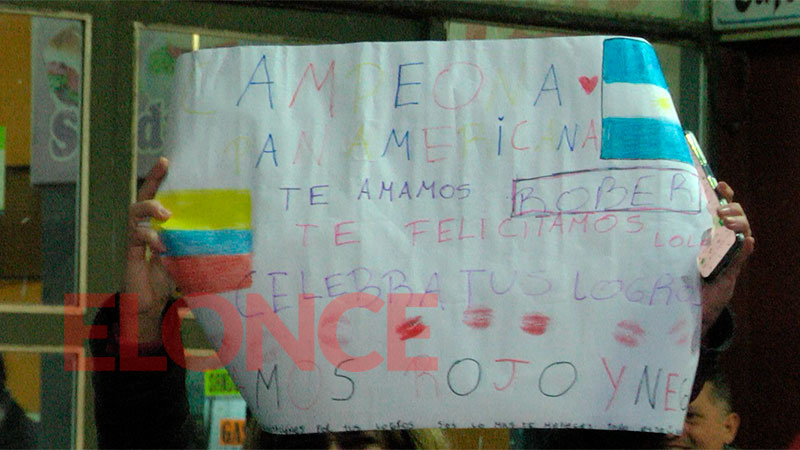 CAMPEONA
PANAMERICANA
TE AMAMOS ROBER
TE FELICITAMOS LOLA
CELEBRA TUS LOGRO
ELONCE
MOS ROJO Y NEG
GAS